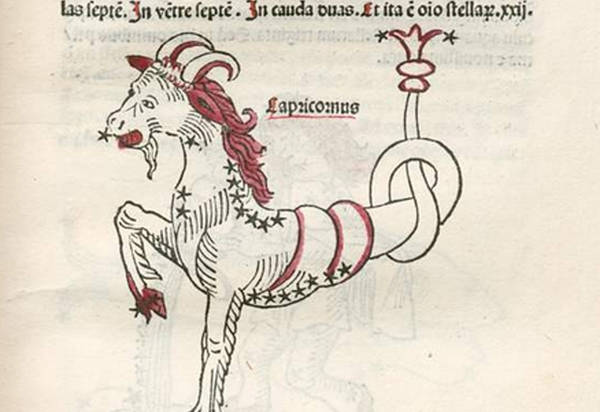 las septē. In vētre septē. In cauda duas. Et ita ē oīo stellaꝝ .xxij.
Capricornus